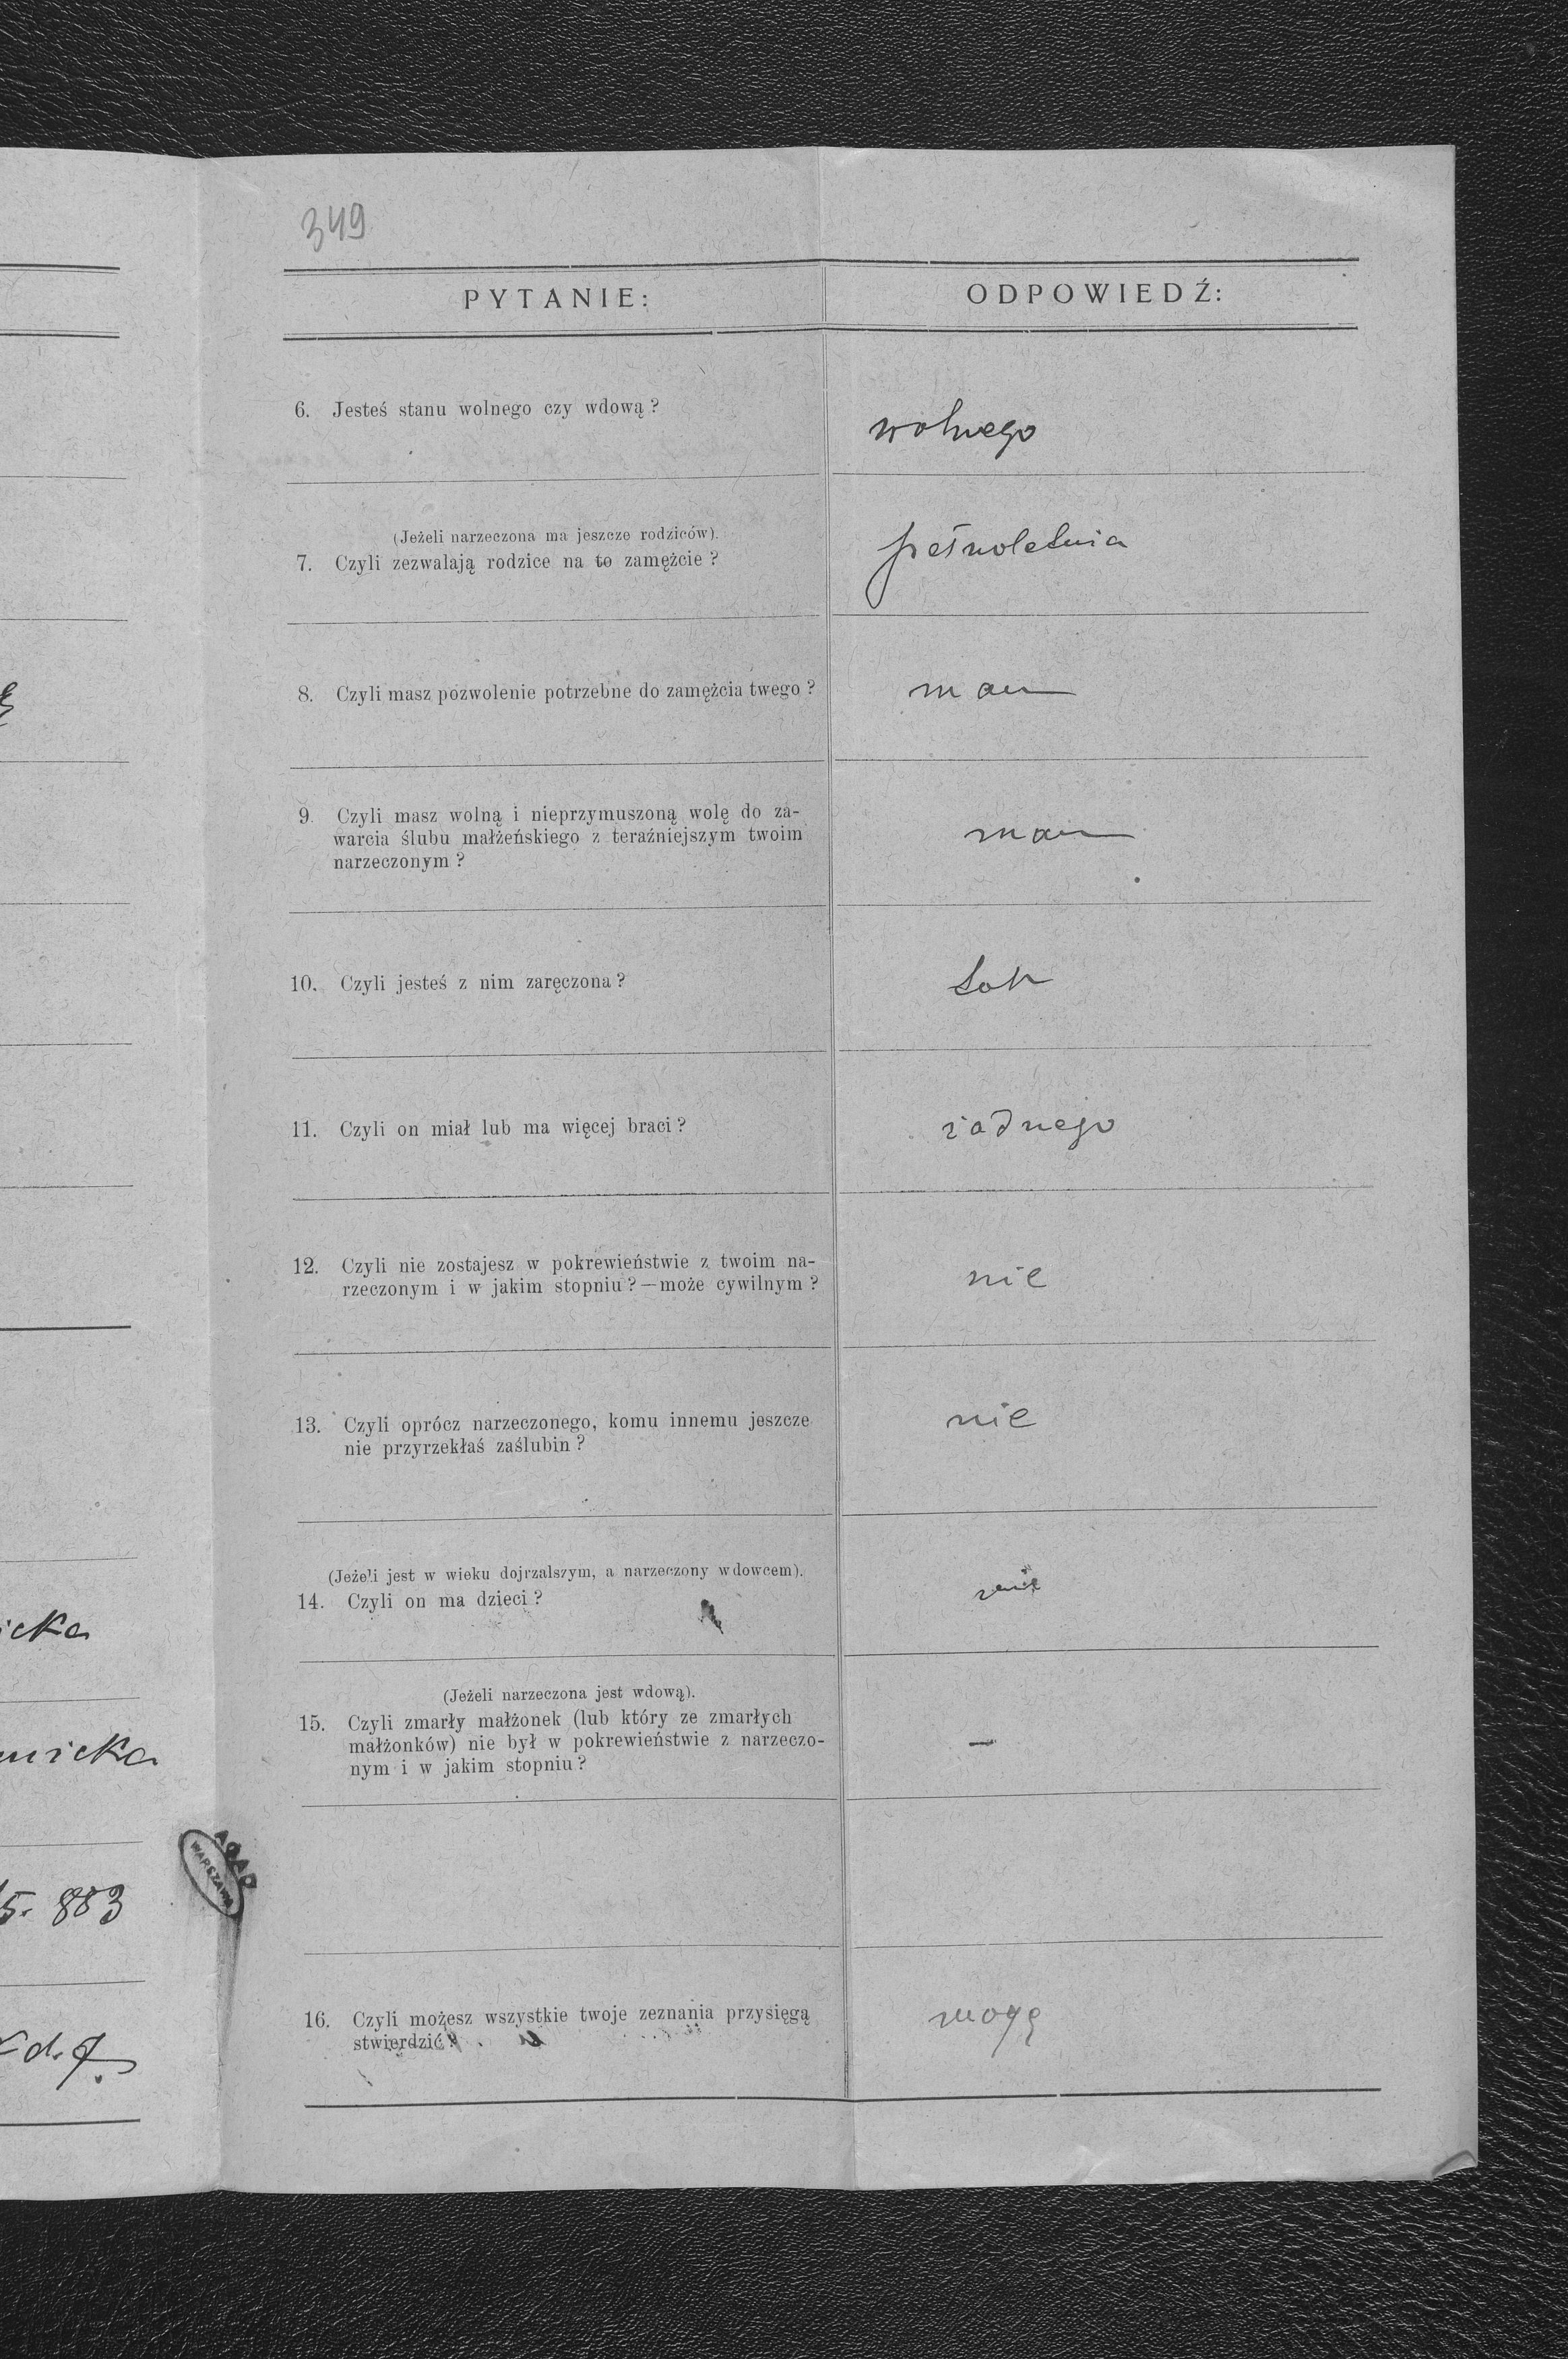 349
PYTANIE:
ODPOWIEDŹ:
6. Jesteś stanu wolnego czy wdową?
wolnego
(Jeżeli narzeczona ma jeszcze rodziców).
7. Czyli zezwalają rodzice na to zamężcie?
pełnoletnia
8. Czyli masz pozwolenie potrzebne do zamężcia twego?
mam
9. Czyli masz wolną i nieprzymuszoną wolę do za-
warcia ślubu małżeńskiego z teraźniejszym twoim
narzeczonym?
mam
10. Czyli jesteś z nim zaręczona?
tak
11. Czyli on miał lub ma więcej braci?
żadnego
12. Czyli nie zostajesz w pokrewieństwie z twoim na-
rzeczonym i w jakim stopniu?—może cywilnym?
nie
13. Czyli oprócz narzeczonego, komu innemu jeszcze
nie przyrzekłaś zaślubin?
nie
(Jeżeli jest w wieku dojrzalszym, a narzeczony wdowcem).
14. Czyli on ma dzieci?
nie
(Jeżeli narzeczona jest wdową).
15. Czyli zmarły małżonek (lub który ze zmarłych
małżonków) nie był w pokrewieństwie z narzeczo-
nym i w jakim stopniu?
—
16. Czyli możesz wszystkie twoje zeznania przysięgą
stwierdzić?
mogę
icka
nicka
5. 883
AGAD
WARSZAWA